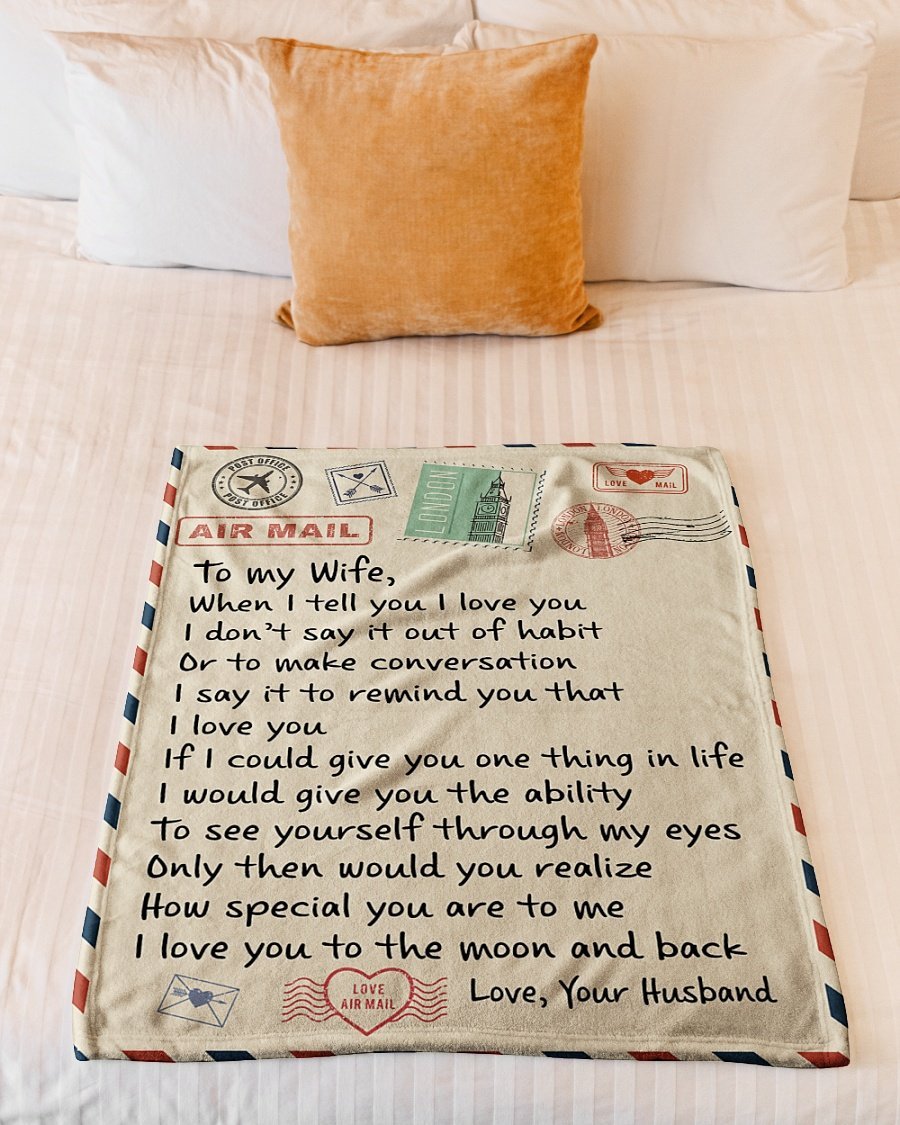 POST OFFICE
POST OFFICE
LONDON
LOVE MAIL
LONDON LONDON
LONDON
AIR MAIL
To my Wife,
When I tell you I love you
I don't say it out of habit
Or to make conversation
I say it to remind you that
I love you
If I could give you one thing in life
I would give you the ability
To see yourself through my eyes
Only then would you realize
How special you are to me
I love you to the moon and back
LOVE
AIR MAIL
Love, Your Husband